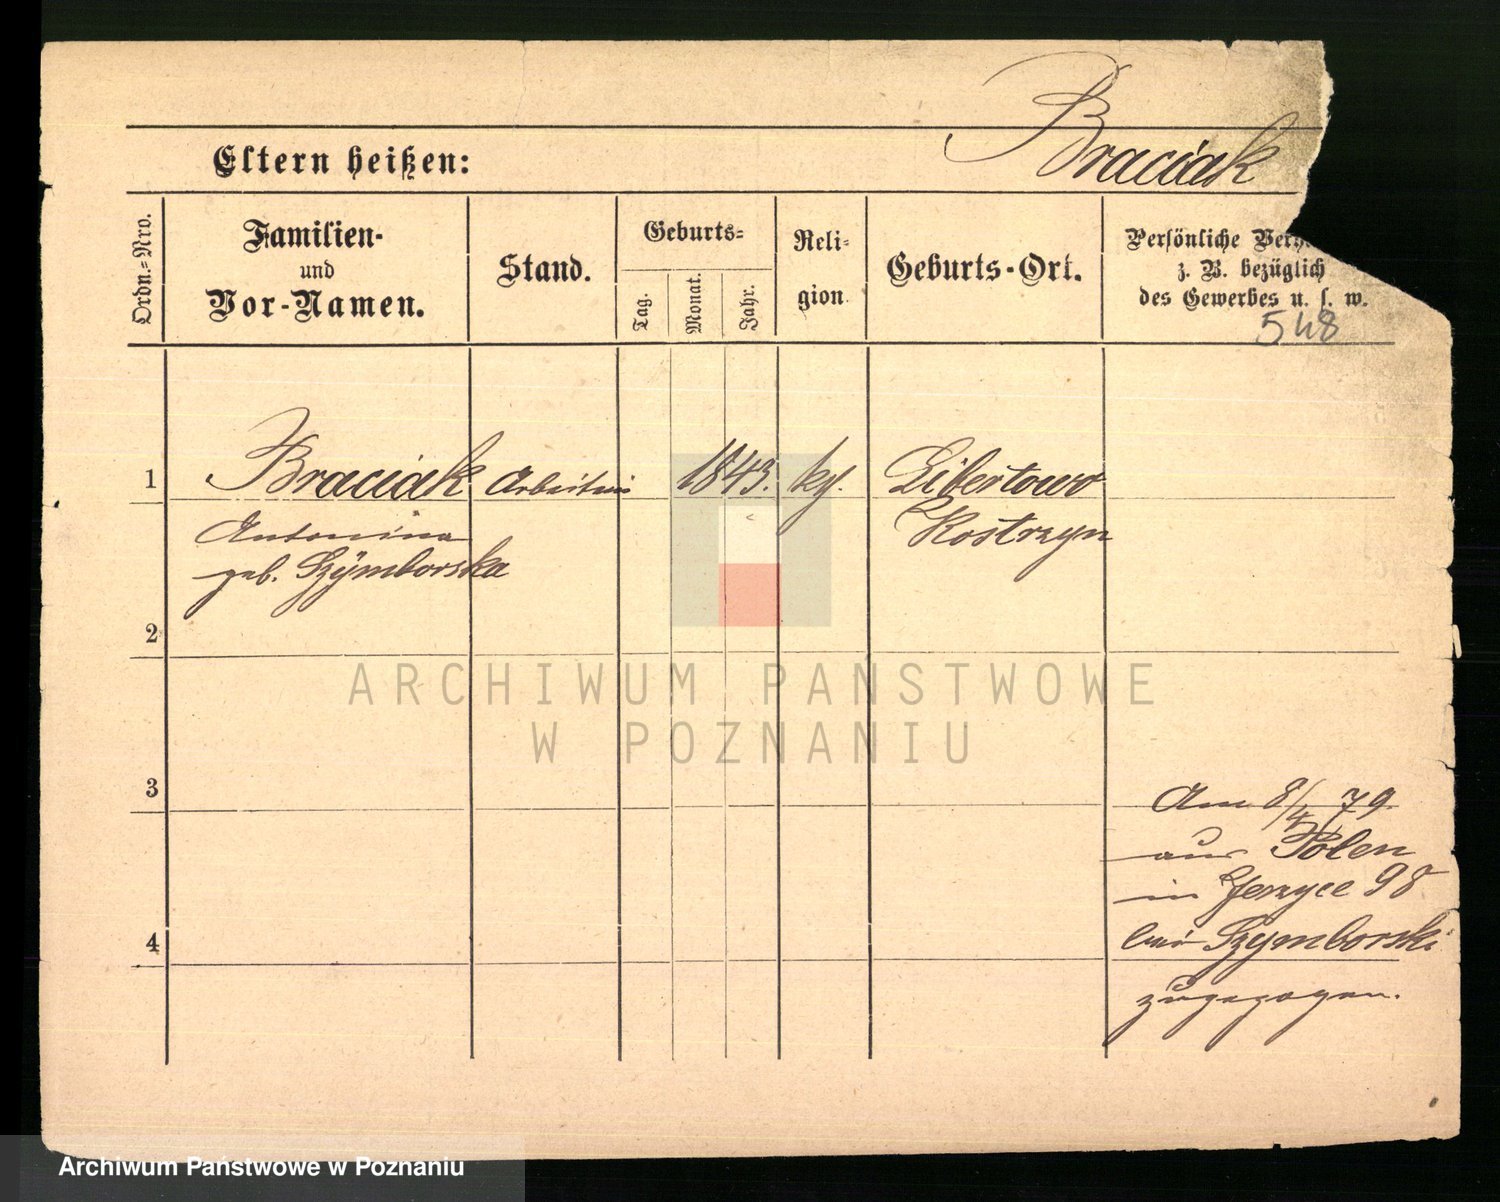 Braciak
Eltern heißen:
Ordn.-Nro.
Familien-
und
Vor-Namen.
Stand.
Geburts-
Tag.
Monat.
Jahr.
Reli-
gion
Geburts-Ort.
Persönliche
z. B. bezüglich
des Gewerbes u. s. w.
548
1
Braciak
Arbeiterin
1843.
kg.
Libertowo
Antonina
Kostrzyn
geb. Szÿmborska
2
3
Am 8/4 79.
aus Polen
in Jerzyce 98
4
bei Szymborski
zugezogen.
ARCHIWUM PAŃSTWOWE
W POZNANIU
Archiwum Państwowe w Poznaniu